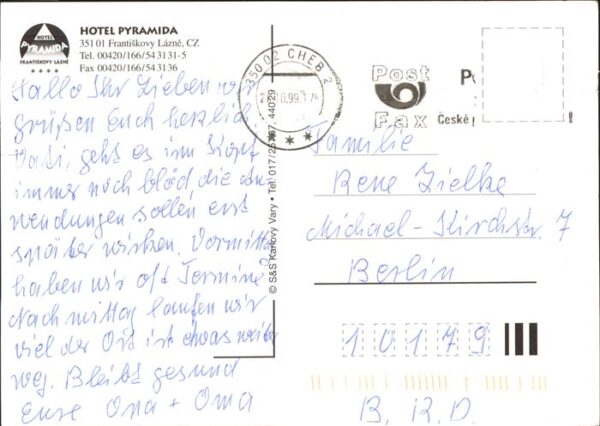 HOTEL
PYRAMIDA
FRANTIŠKOVY LÁZNĚ
HOTEL PYRAMIDA
351 01 Františkovy Lázně, CZ
Tel. 00420/166/54 3131-5
Fax 00420/166/54 3136
Hallo Ihr Lieben wir
grüßen Euch herzlich
Vati, gehts es im Kopf
immer noch blöd, die An
wendungen sollen erst
später wirken. Vormitta
haben wir oft Termine
Nachmittag laufen wir
viel der Ort ist etwas weiter
weg. Bleibt gesund
Eure Opa + Oma
© S&S Karlovy Vary • Tel. 017/25 44029
350 02 CHEB 2
Post
Fax
České
Familie
Rene Zielke
Michael-Kirchstr. 7
Berlin
10179
B. R. D.